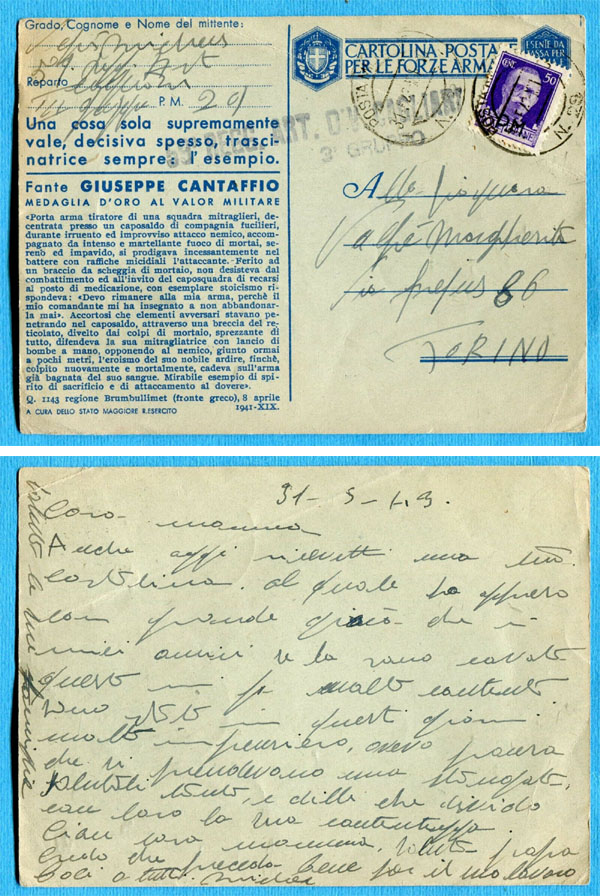 Grado, Cognome e Nome del mittente:
Reparto
P. M. 201
CARTOLINA POSTALE
PER LE FORZE ARMATE
ESENTE DA
TASSA PER
CENT. 50
53° REGG. ART. D'
3° GRUPPO
Una cosa sola supremamente
vale, decisiva spesso, trasci-
natrice sempre: l'esempio.
Fante GIUSEPPE CANTAFFIO
MEDAGLIA D'ORO AL VALOR MILITARE
«Porta arma tiratore di una squadra mitraglieri, de-
centrata presso un caposaldo di compagnia fucilieri,
durante irruento ed improvviso attacco nemico, accom-
pagnato da intenso e martellante fuoco di mortai, se-
renò ed impavido, si prodigava incessantemente nel
battere con raffiche micidiali l'attaccante. - Ferito ad
un braccio da scheggia di mortaio, non desisteva dal
combattimento ed all'invito del caposquadra di recarsi
al posto di medicazione, con esemplare stoicismo ri-
spondeva: «Devo rimanere alla mia arma, perchè il
mio comandante mi ha insegnato a non abbandonar-
la mai». Accortosi che elementi avversari stavano pe-
netrando nel caposaldo, attraverso una breccia del re-
ticolato, divelto dai colpi di mortaio, sprezzante di
tutto, difendeva la sua mitragliatrice con lancio di
bombe a mano, opponendo al nemico, giunto ormai
a pochi metri, l'eroismo del suo nobile ardire, finchè,
colpito nuovamente e mortalmente, cadeva sull'arma
già bagnata del suo sangue. Mirabile esempio di spi-
rito di sacrificio e di attaccamento al dovere».
Q. 1143 regione Brumbullimet (fronte greco), 8 aprile
1941-XIX.
A CURA DELLO STATO MAGGIORE R.ESERCITO
Alla
Margherita
Via 66
TORINO
31-5-43.
Cara mamma
Anche oggi ricevetti una tua
cartolina, al quale ho appreso
con grande gioia che i
miei amici se la sono cavata
questo mi fa molto contento
sono stato in questi giorni
molto in pensiero, avevo paura
che si prendevano una stangata,
salutali tanto, e dilli che divido
con loro la sua contentezza
Ciau cara mamma, saluta papà
credo che proceda bene poi il suo lavoro
Baci a tutti